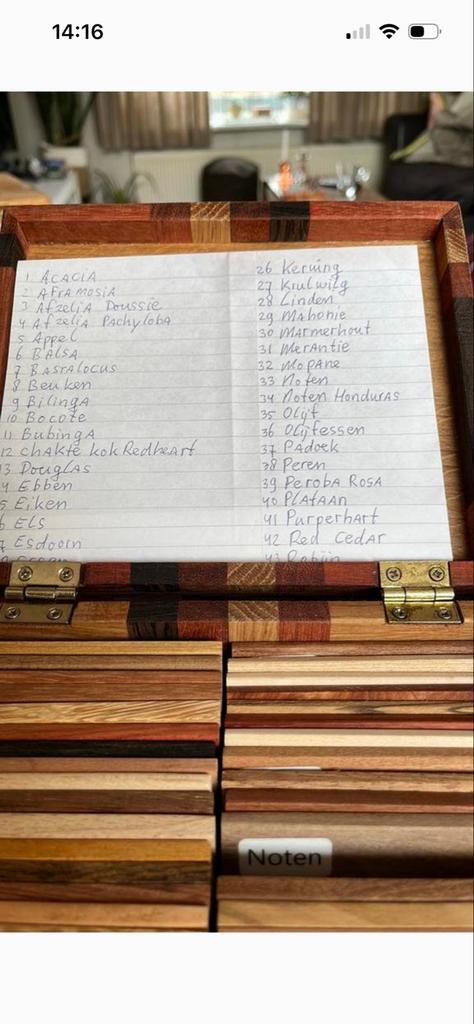 14:16
1 ACACIA
2 AFRAMOSIA
3 Afzelia Doussie
4 Afzelia Pachyloba
5 Appel
6 BALSA
7 BASRALOCUS
8 Beuken
9 Bilinga
10 Bocote
11 Bubinga
12 chakte kok Redheart
13 Douglas
4 Ebben
5 Eiken
6 Els
7 Esdoorn
26 Keruing
27 Krulwilg
28 Linden
29 Mahonie
30 Marmerhout
31 Merantie
32 Mopane
33 Noten
34 Noten Honduras
35 Olijf
36 Olijfessen
37 Padoek
38 Peren
39 Peroba Rosa
40 Plataan
41 Purperhart
42 Red Cedar
43 Robijn
Noten